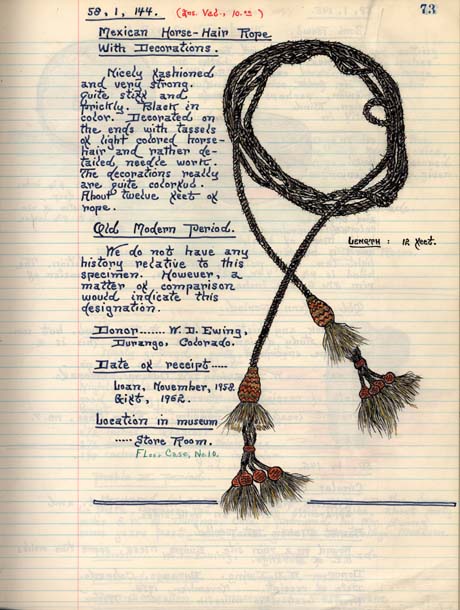 58, 1, 144. (Ins. Val., 10.00)
73
Mexican Horse-Hair Rope
With Decorations.
Nicely fashioned
and very strong.
Quite stiff and
prickly. Black in
color. Decorated on
the ends with tassels
of light colored horse-
hair and rather de-
tailed needle work.
The decorations really
are quite colorful.
About twelve feet of
rope.
Old Modern Period.
We do not have any
history relative to this
specimen. However, a
matter of comparison
would indicate this
designation.
Length: 12 feet.
Donor....... W. D. Ewing,
Durango, Colorado.
Date of receipt.....
Loan, November, 1958.
Gift, 1962.
Location in museum
..... Store Room.
Floor Case, No. 10.